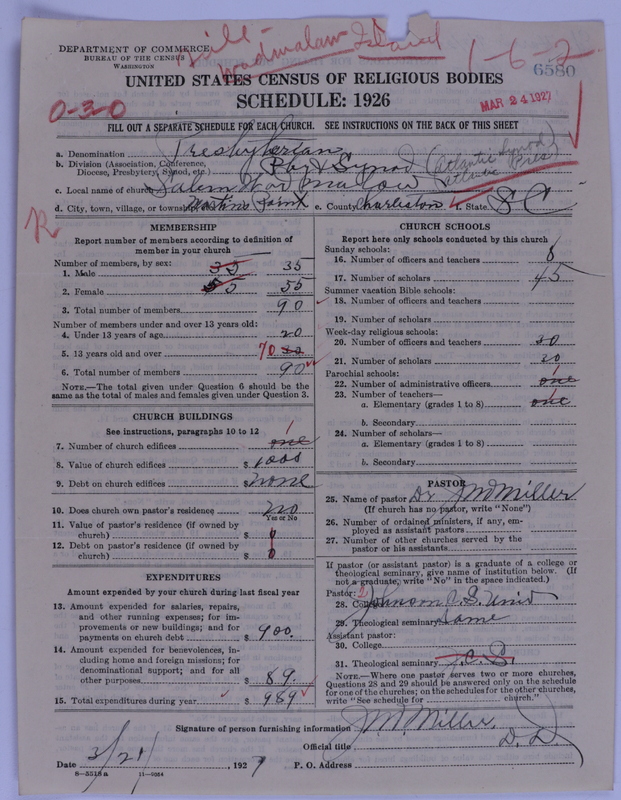 DEPARTMENT OF COMMERCE
BUREAU OF THE CENSUS
WASHINGTON
Wadmalaw Island
1-6-2
6580
UNITED STATES CENSUS OF RELIGIOUS BODIES
SCHEDULE: 1926
MAR 24 1927
0-3-0
FILL OUT A SEPARATE SCHEDULE FOR EACH CHURCH. SEE INSTRUCTIONS ON THE BACK OF THIS SHEET
a. Denomination Presbyterian
b. Division (Association, Conference, Diocese, Presbytery, Synod, etc.) Pby & Synod (Atlantic Synod Atlantic Pres)
c. Local name of church Salem Wadmalow
d. City, town, village, or township Martins Point e. County Charleston f. State S C
R
MEMBERSHIP
Report number of members according to definition of member in your church
Number of members, by sex:
1. Male 35 35
2. Female 55 55
3. Total number of members 90
Number of members under and over 13 years old:
4. Under 13 years of age 20
5. 13 years old and over 70
6. Total number of members 90
NOTE.—The total given under Question 6 should be the same as the total of males and females given under Question 3.
CHURCH BUILDINGS
See instructions, paragraphs 10 to 12
7. Number of church edifices one 1
8. Value of church edifices $ 1000
9. Debt on church edifices $ none
10. Does church own pastor's residence? no
Yes or No
11. Value of pastor's residence (if owned by church) $ 0
12. Debt on pastor's residence (if owned by church) $ 0
EXPENDITURES
Amount expended by your church during last fiscal year
13. Amount expended for salaries, repairs, and other running expenses; for improvements or new buildings; and for payments on church debt $ 900.
14. Amount expended for benevolences, including home and foreign missions; for denominational support; and for all other purposes $ 89.
15. Total expenditures during year $ 989
CHURCH SCHOOLS
Report here only schools conducted by this church
Sunday schools:
16. Number of officers and teachers 8
17. Number of scholars 45
Summer vacation Bible schools:
18. Number of officers and teachers
19. Number of scholars
Week-day religious schools:
20. Number of officers and teachers 30
21. Number of scholars 20
Parochial schools:
22. Number of administrative officers one
23. Number of teachers—
a. Elementary (grades 1 to 8) one
b. Secondary
24. Number of scholars—
a. Elementary (grades 1 to 8)
b. Secondary
PASTOR
25. Name of pastor Dr J M Miller
(If church has no pastor, write "None")
26. Number of ordained ministers, if any, employed as assistant pastors
27. Number of other churches served by the pastor or his assistants
If pastor (or assistant pastor) is a graduate of a college or theological seminary, give name of institution below. (If not a graduate, write "No" in the space indicated.)
Pastor:
28. College Johnson C. S. Univ
29. Theological seminary Same
Assistant pastor:
30. College
31. Theological seminary J. C. S.
NOTE.—Where one pastor serves two or more churches, Questions 28 and 29 should be answered only on the schedule for one of the churches; on the schedules for the other churches, write "See schedule for church."
Signature of person furnishing information J M Miller
Official title D. D.
Date 3/21/, 1927 P. O. Address
8-5518a 11-9064